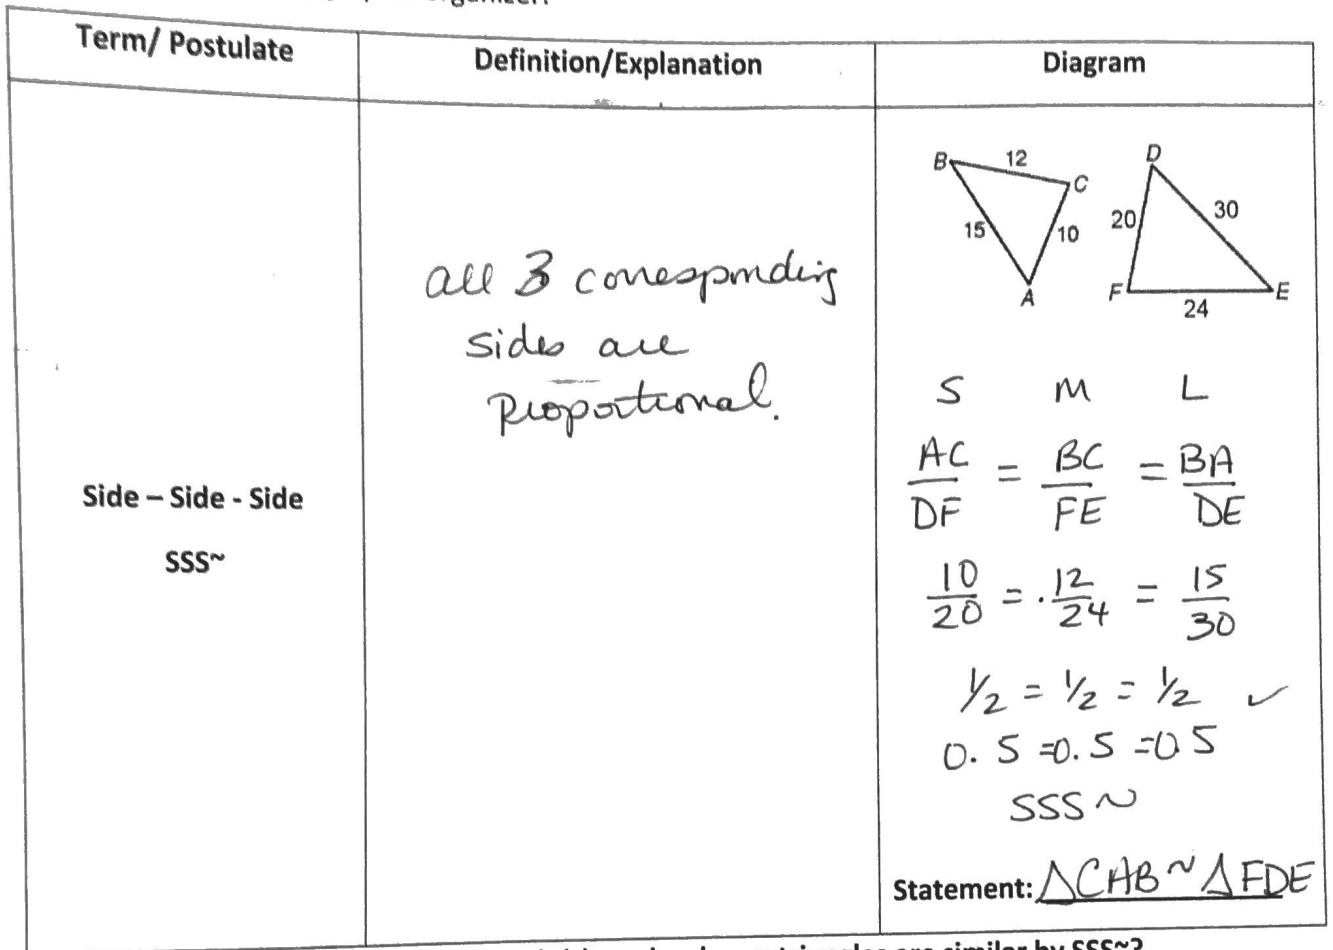 organizer.
Term/ Postulate
Definition/Explanation
Diagram
Side – Side - Side
SSS~
all 3 corresponding
sides are
proportional.
B 12 C
15 10
A
D
20 30
F 24 E
S M L
AC/DF = BC/FE = BA/DE
10/20 = .12/24 = 15/30
1/2 = 1/2 = 1/2 ✓
0.5 =0.5 =0 5
SSS ~
Statement: △CAB ~ △FDE
triangles are similar by SSS~?